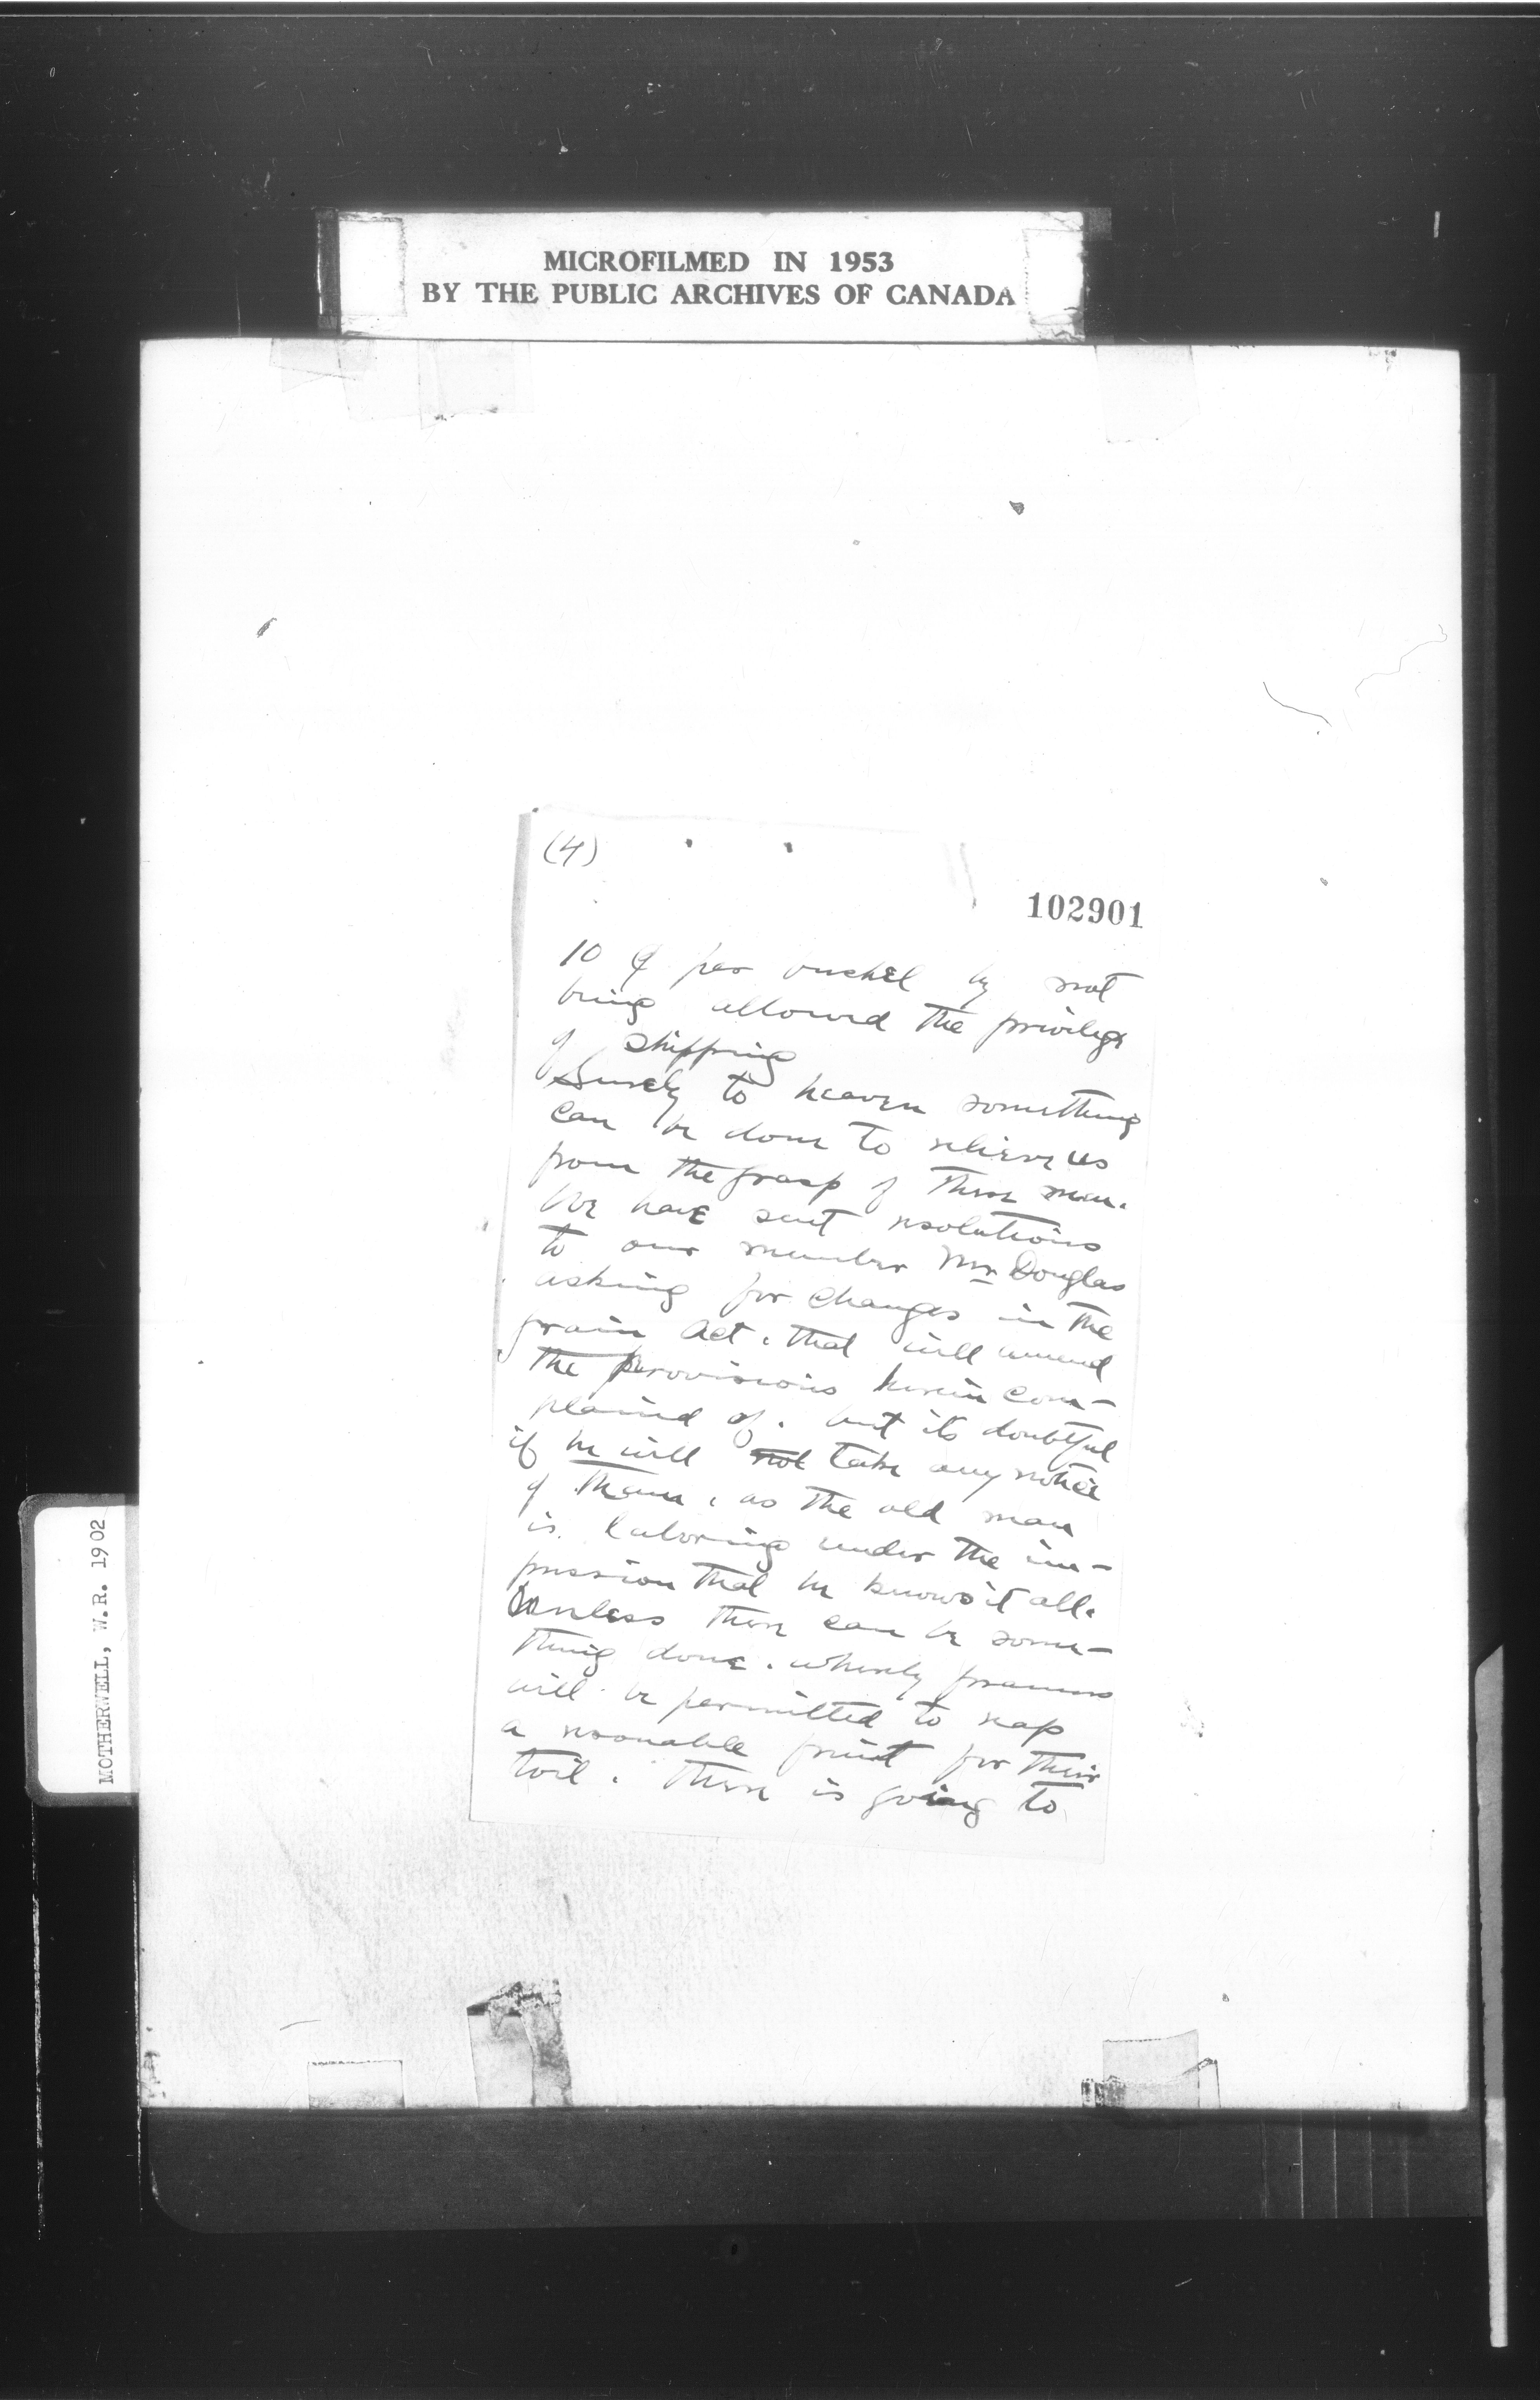 MICROFILMED IN 1953
BY THE PUBLIC ARCHIVES OF CANADA
(4)
102901
10 ¢ per bushel by not
being allowed the privilege
of shipping
Surely to heaven something
can be done to relieve us
from the grasp of these men.
We have sent resolutions
to our member Mr Douglas
asking for changes in the
grain act. that will amend
the provisions herein com-
plained of. but its doubtful
if he will not take any notice
of them, as the old man
is laboring under the im-
pression that he knows it all.
Unless there can be some-
thing done. whereby farmers
will be permitted to reap
a reasonable fruit for their
toil. there is going to
MOTHERWELL, W.R. 1902